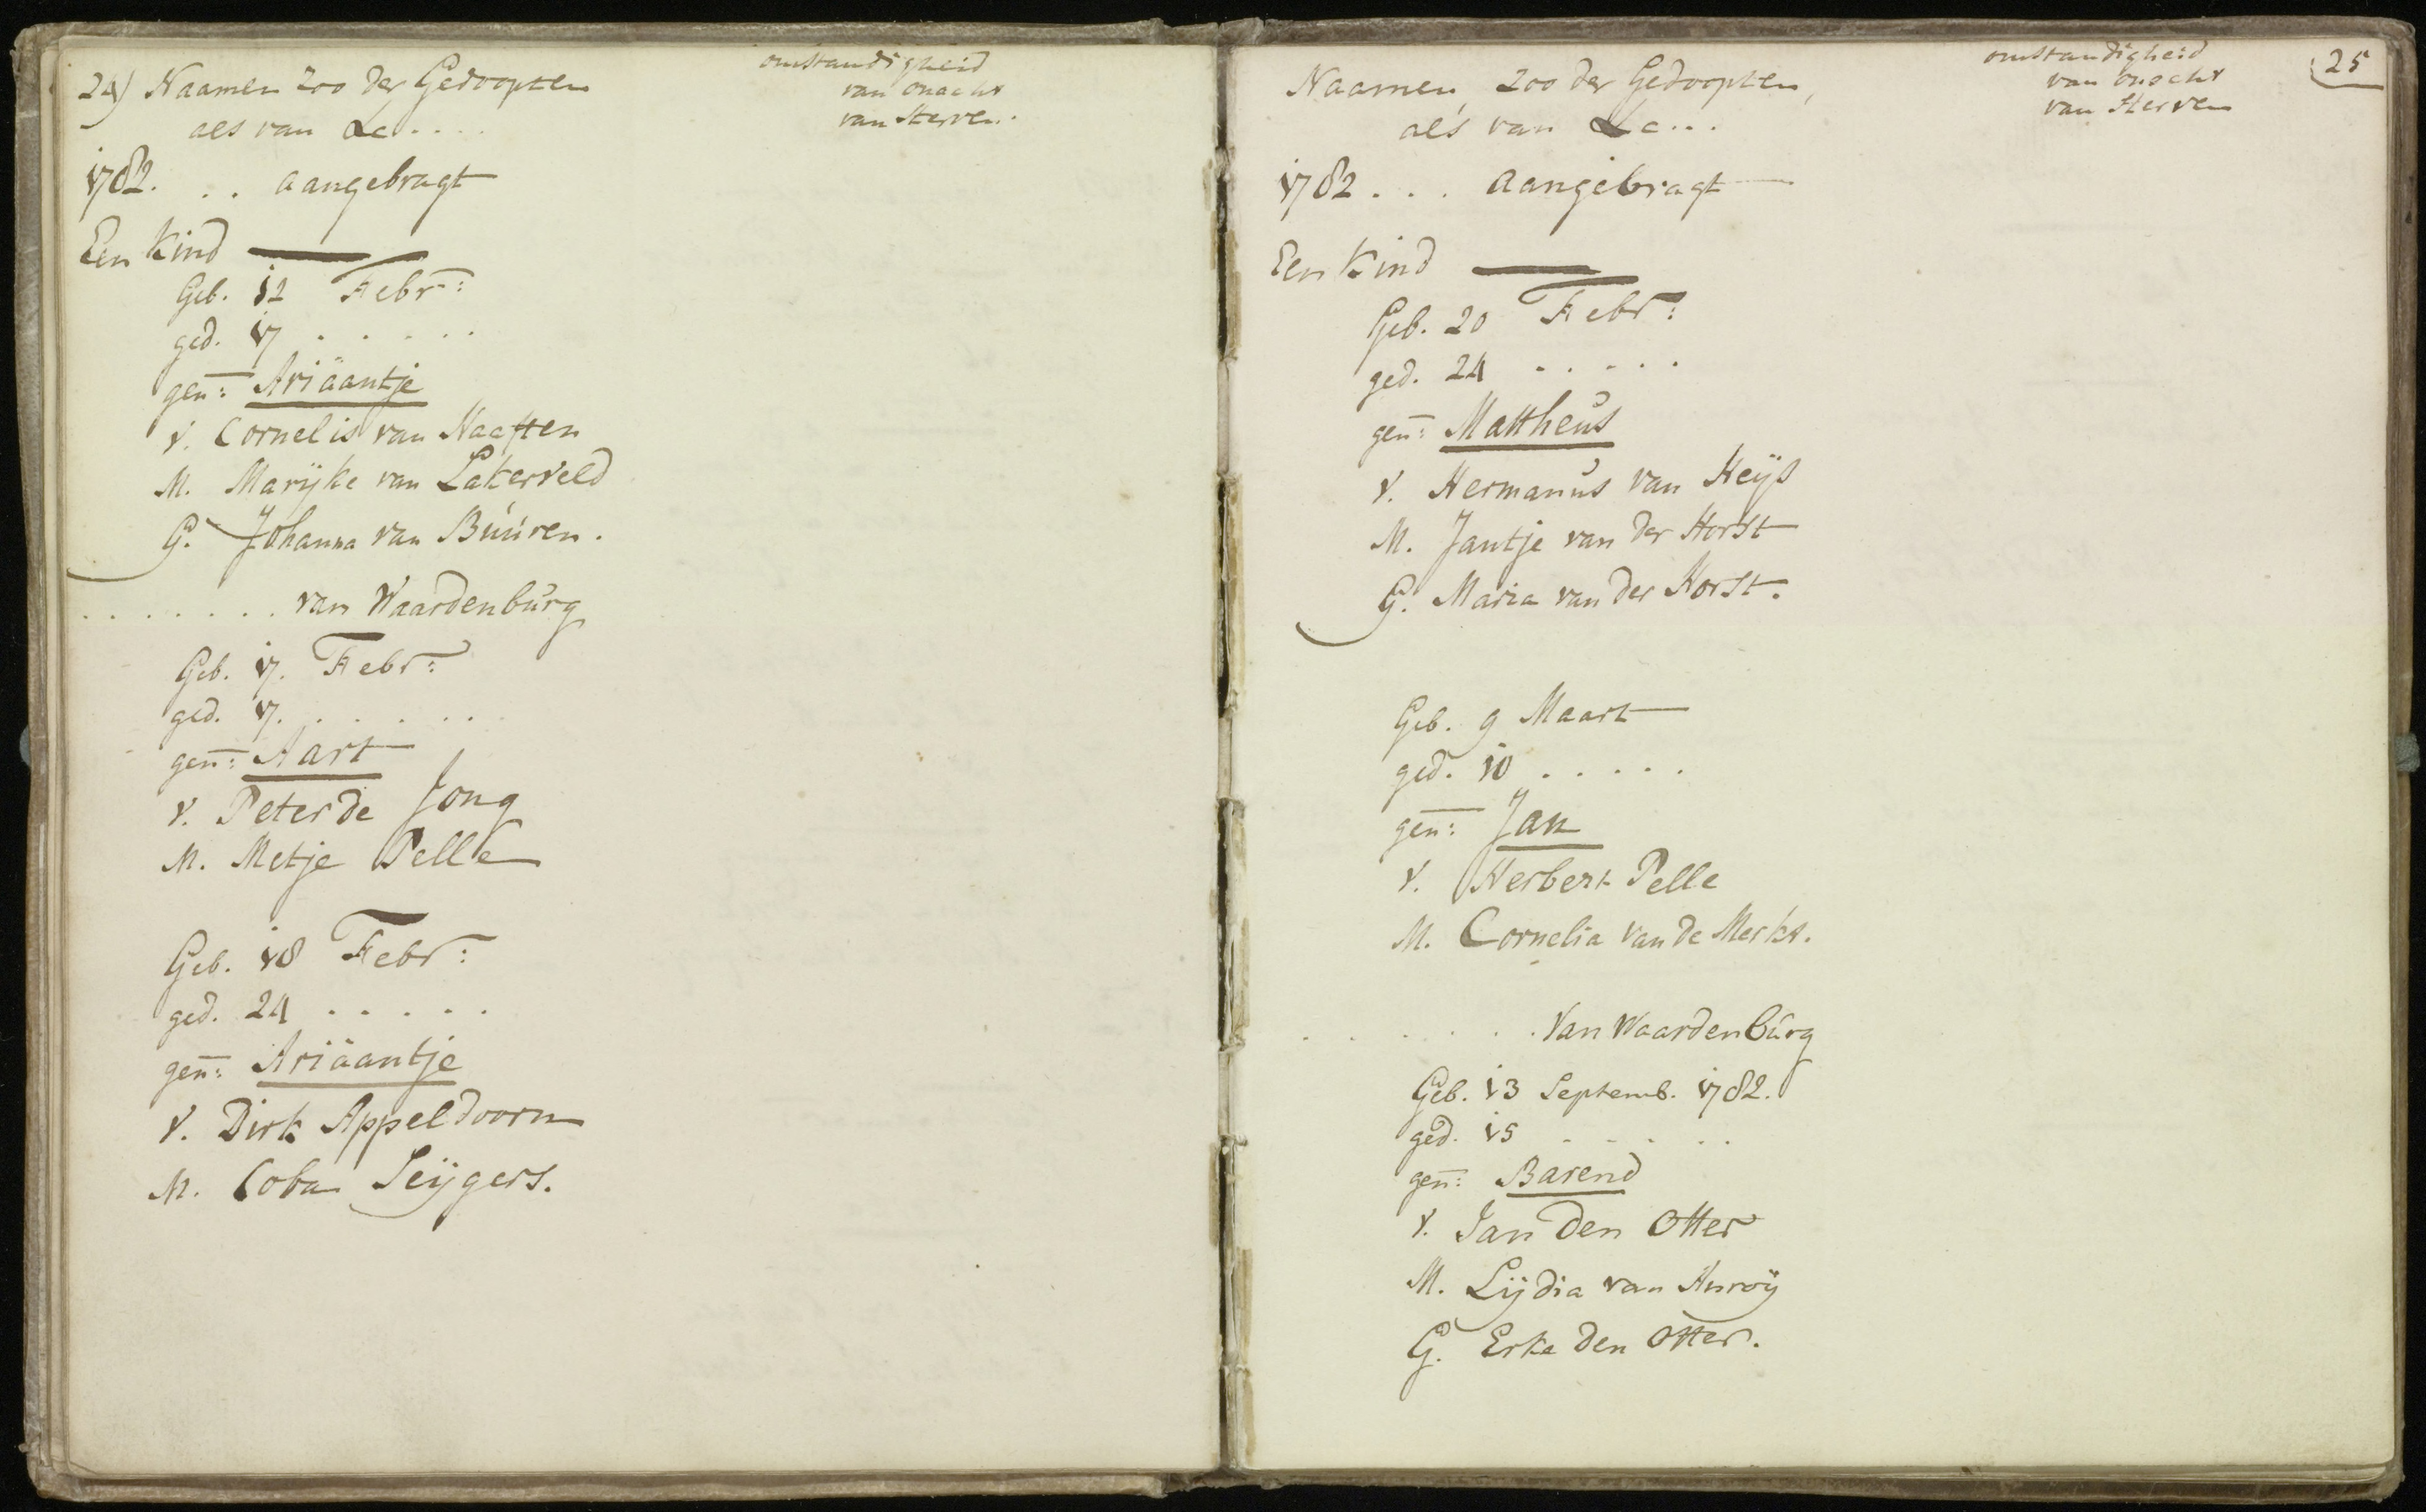 24) Naamen zoo der Gedoopten
als van &c....
omstandigheid
van onecht
van sterven.
1782. . . aangebragt
Een Kind
Geb. 12 Febr:
ged. 17 . . . . .
gen: Ariäantje
V. Cornelis van Haaften
M. Marijke van Lakerveld
G. Johanna van Buuren.
. . . . . . . van Waardenburg
Geb. 17. Febr:
ged. 17. . . . . .
gen: Aart
V. Peter de Jong
M. Metje Pelle
Geb. 18 Febr:
ged. 24 . . . . .
gen: Ariäantje
V. Dirk Appeldoorn
M. Coba Seijgers.
25
Naamen, zoo der Gedoopten,
als van &c...
omstandigheid
van onecht
van sterven
1782 . . . aangebragt
Een Kind
Geb. 20 Febr:
ged. 24 . . . . .
gen: Mattheus
V. Hermanus van Heijs
M. Jantje van der Horst
G. Maria van der Horst.
Geb. 9 Maart
ged. 10 . . . . .
gen: Jan
V. Herbert Pelle
M. Cornelia van de Merkt.
. . . . . . Van Waardenburg
Geb. 13 Septemb. 1782.
ged. 15 . . . . .
gen: Barend
V. Jan den Otter
M. Lijdia van Anroij
G. Erke den Otter.